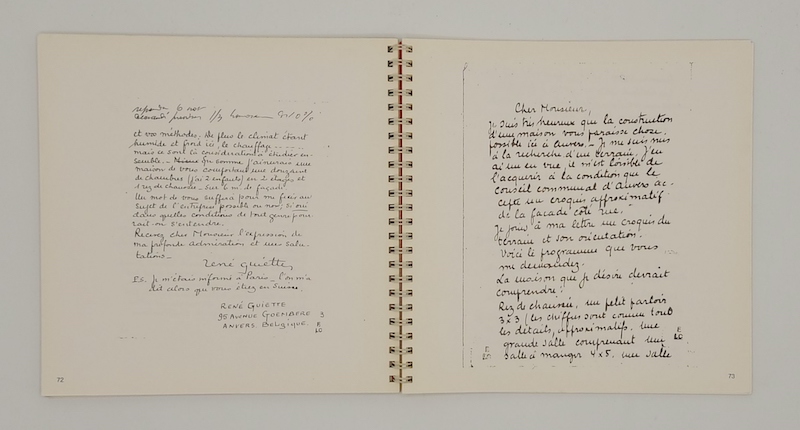 6 nov
1/3
et vos méthodes. De plus le climat étant
humide et froid ici, le chauffage.....
mais ce sont là considérations à étudier en-
semble. - comme j'aimerais une
maison de vous comportant une douzaine
de chambres (j'ai 2 enfants) en 2 étages et
1 rez de chaussée - sur 6 m. de façade
Un mot de vous suffira pour me fixer au
sujet de l'entreprise possible ou non; si oui
dans quelles conditions de tout genre pour
rait-on s'entendre.
Recevez cher Monsieur l'expression de
ma profonde admiration et mes salu
tations -
René Guiette
P.S. Je m'étais informé à Paris - l'on m'a
dit alors que vous étiez en Suisse
RENÉ GUIETTE
95 AVENUE GOEMBERE
ANVERS. BELGIQUE.
3
E
20
72
Cher Monsieur,
Je suis très heureux que la construction
d'une maison vous paraisse chose
possible ici à Anvers - Je me suis mis
à la recherche d'un terrain. J'en
ai un en vue, il m'est loisible de
l'acquérir à la condition que le
conseil communal d'Anvers ac-
cepte un croquis approximatif
de la façade côté rue.
Je joins à ma lettre un croquis du
terrain et son orientation.
Voici le programme que vous
me demandez.
La maison que je désire devrait
comprendre:
Rez de chaussée, un petit parloir
3x3 (les chiffres sont comme tout
les détails, approximatifs, une
grande salle comprenant une
salle à manger 4x5, une salle
E
20
E
20
73